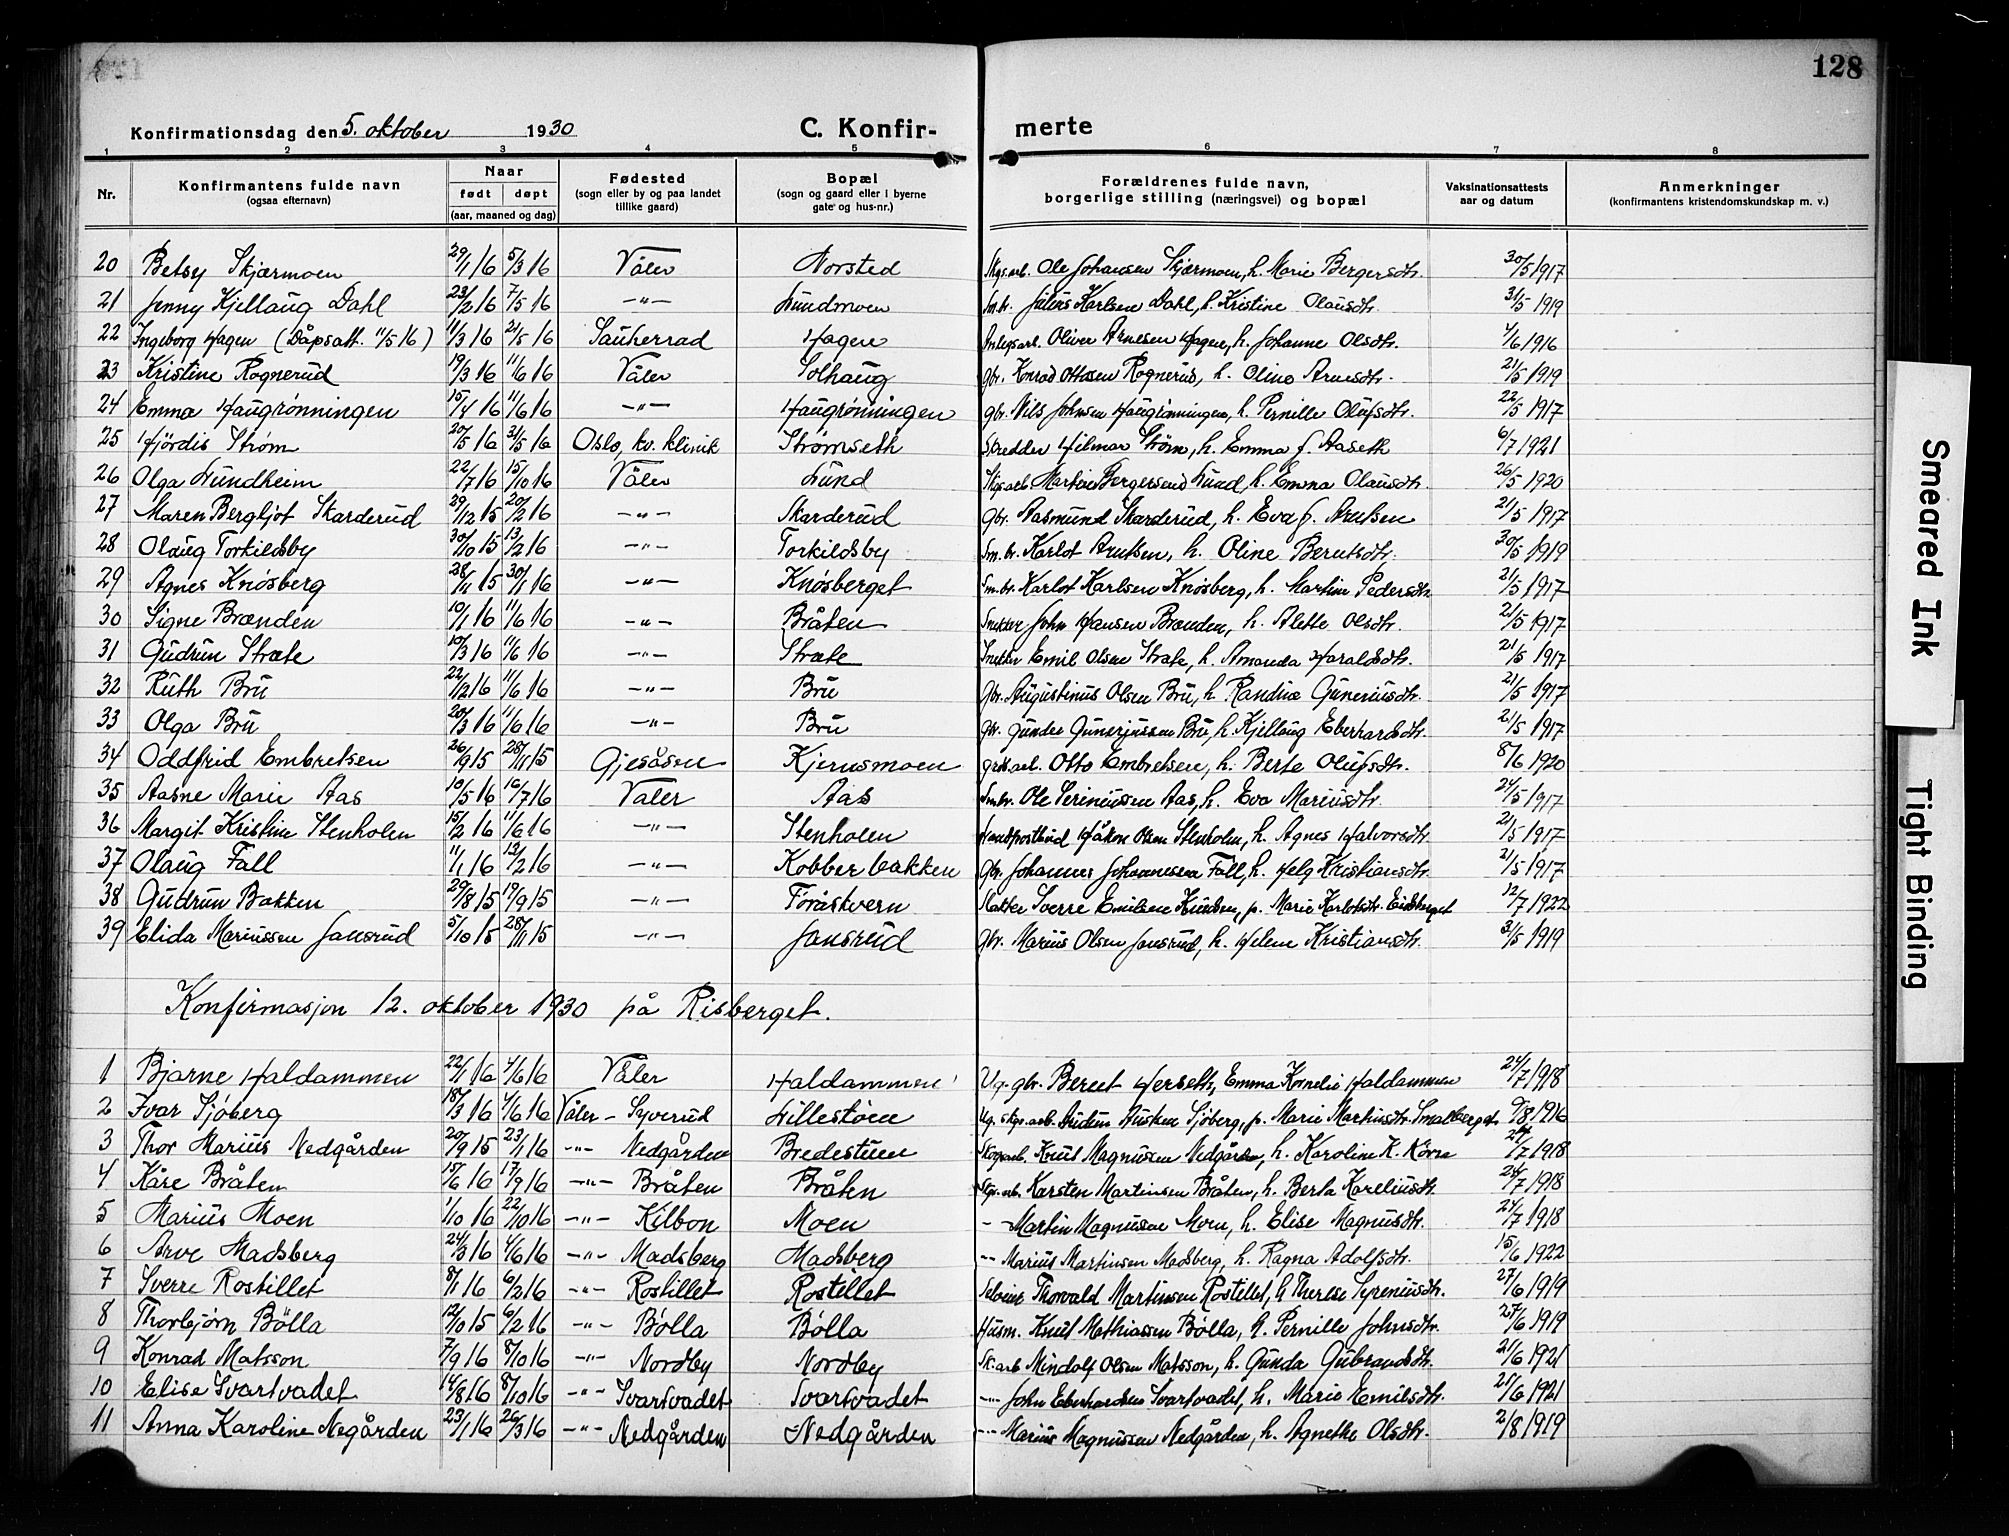 128
Konfirmationsdag den 5. oktober 1930 C. Konfir- merte
1 2 3 4 5 6 7 8
Nr. Konfirmantens fulde navn (ogsaa efternavn) Naar født døpt (aar, maaned og dag) Fødested (sogn eller by og paa landet tillike gaard) Bopæl (sogn og gaard eller i byerne gate og hus-nr.) Forældrenes fulde navn, borgerlige stilling (næringsvei) og bopæl Vaksinationsattests aar og datum Anmerkninger (konfirmantens kristendomskundskap m. v.)
20 Betsy Skjærmoen 29/1 16 5/3 16 Våler Norsted Skgs.arb. Ole Johansen Skjærmoen, h. Marie Bergersdtr. 30/5 1917
21 Jenny Kjellaug Dahl 23/2 16 7/5 16 -"- Lundmoen Sm.br. Julius Karlsen Dahl, h. Kristine Olausdtr. 31/5 1919
22 Ingeborg Hagen (Dåpsatt. 11/5 16) 11/3 16 21/5 16 Sauherrad Hagen Anlegsarb. Oliver Arnesen Hagen, h. Johanne Olsdtr. 4/6 1916
23 Kristine Rognerud 19/3 16 11/6 16 Våler Solhaug gbr. Konrad Ottesen Rognerud, h. Oline Arnesdtr. 21/5 1919
24 Emma Haugrønningen 15/4 16 11/6 16 -"- Haugrønningen gbr. Nils Johnsen Haugrønningen, h. Pernille Olufsdtr. 22/5 1917
25 Hjördis Strøm 20/5 16 31/5 16 Oslo, kv. klinik Strømseth Skredder Hilmar Strøm, h. Emma f. Aaseth 6/7 1921
26 Olga Lundheim 22/7 16 15/10 16 Våler Lund Skgs.arb. Martin Bergersen Lund, h. Emma Olausdtr. 26/5 1920
27 Maren Bergljot Skarderud 29/12 15 20/2 16 -"- Skarderud Gbr. Aasmund Skarderud, h. Eva f. Arntsen 21/5 1917
28 Olaug Torkildsby 30/10 15 13/2 16 -"- Torkildsby Sm.br. Karlot Arntsen, h. Oline Berntsdtr. 30/5 1919
29 Agnes Knösberg 28/11 15 30/1 16 -"- Knösberget Sm.br. Karlot Karlsen Knösberg, h. Martine Pedersdtr. 21/5 1917
30 Signe Brænden 10/1 16 11/6 16 -"- Bråten Snekker John Hansen Brænden, h. Alette Olsdtr. 21/5 1917
31 Gudrun Stræte 10/3 16 11/6 16 -"- Stræte Snekker Emil Olsen Stræte, h. Amanda Haraldsdtr. 21/5 1917
32 Ruth Bru 22/2 16 11/6 16 -"- Bru Gbr. Augustinus Olsen Bru, h. Randine Guneriusdtr. 21/5 1917
33 Olga Bru 20/3 16 11/6 16 -"- Bru Gbr. Gunder Gunerjussen Bru, h. Kjellaug Eberhardsdtr. 21/5 1917
34 Oddfrid Embretsen 26/9 15 28/11 15 Gjesåsen Kjernsmoen Otto Embretsen, h. Berte Olufsdtr. 8/6 1920
35 Aasne Marie Aas 10/5 16 16/7 16 Våler Aas Sm.br. Ole Serinussen Aas, h. Eva Mariusdtr. 24/5 1917
36 Margit Kristine Stenholen 15/2 16 11/6 16 -"- Stenholen Landpostbud Håkon Olsen Stenholen, h. Agnes Halvorsdtr. 21/5 1917
37 Olaug Fall 11/1 16 13/2 16 -"- Kobberbakken Gbr. Johannes Johannesen Fall, h. Helg Kristiansdtr. 21/5 1917
38 Gudrun Bakken 29/8 15 19/9 15 -"- Foråskvern Slakter Sverre Emilsen Knudsen, p. Marie Karlotsdtr. Eidsberget 12/7 1922
39 Elida Mariussen Jansrud 5/10 15 28/11 15 -"- Jansrud Gbr. Marius Olsen Jansrud, h. Helene Kristiansdtr. 31/5 1919
Konfirmasjon 12. oktober 1930 på Risberget.
1 Bjarne Haldammen 22/1 16 4/6 16 Våler Haldammen Ug. gbr. Bernt Herseth, Emma Kornelie Haldammen 24/7 1918
2 Ivar Sjöberg 18/3 16 4/6 16 Våler - Syverud Lillestöen Ug. skgs.arb. Sjöberg, p. Marie Martinsdtr. Smalberget 9/8 1916
3 Thor Marius Nedgården 20/9 15 23/1 16 -"- Nedgården Bredestuen Skogsarb. Knut Magnussen Nedgården, h. Karoline K. 24/7 1918
4 Kåre Bråten 15/6 16 17/9 16 -"- Bråten Bråten Skgs.arb. Karsten Martinsen Bråten, h. Berta Kareliusdtr. 24/7 1918
5 Marius Moen 1/10 16 22/10 16 -"- Kilbon Moen -"- Martin Magnussen Moen, h. Elise Magnusdtr. 24/7 1918
6 Arve Madsberg 24/3 16 4/6 16 -"- Madsberg Madsberg -"- Marius Martinsen Madsberg, h. Ragna Adolfsdtr. 15/6 1922
7 Sverre Rostillet 8/1 16 6/2 16 -"- Rostillet Rostillet Selveier Thorvald Martinsen Rostillet, h. Therese Syreniusdtr. 27/6 1919
8 Thorbjörn Bölla 12/10 15 6/2 16 -"- Bölla Bölla Husm. Knut Mathiassen Bölla, h. Pernille Johnsdtr. 27/6 1919
9 Konrad Matsson 7/9 16 8/10 16 -"- Nordby Nordby Sk.arb. Mindolf Olsen Matsson, h. Gunda Gubrandsdtr. 21/6 1921
10 Elise Svartvadet 14/8 16 8/10 16 -"- Svartvadet Svartvadet -"- John Eberhardsen Svartvadet, h. Marie Emilsdtr. 21/6 1921
11 Anna Karoline Negården 23/1 16 26/3 16 -"- Nedgården Nedgården -"- Marius Magnussen Nedgården, h. Agnethe Olsdtr. 2/8 1919
Smeared Ink
Tight Binding